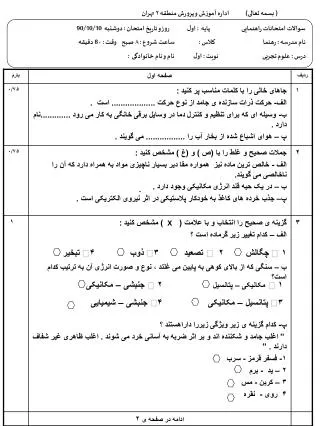 ( بسمه تعالی ) اداره آموزش وپرورش منطقه ۲ تهران
سوالات امتحانات راهنمایی پایه : اول روزو تاریخ امتحان : دوشنبه 90/10/10
نام مدرسه : رهنما کلاس : ساعت شروع : ۸ صبح وقت : 80 دقیقه
درس : علوم تجربی نوبت : اول نام و نام خانوادگی :
ردیف صفحه اول بارم
۱ جاهای خالی را با کلمات مناسب پر کنید : ۰/۷۵
الف- حرکت ذرات سازنده ی جامد از نوع حرکت .................. است .
ب- وسیله ای که برای تنظیم و کنترل دما در وسایل برقی خانگی به کار می رود ............نام
دارد .
پ – هوای اشباع شده از بخار آب را ................. می گویند .
۲ جملات صحیح و غلط را با (ص ) و (غ ) مشخص کنید : ۰/۷۵
الف - خالص ترین ماده نیز همواره مقدار بسیار ناچیزی مواد به همراه دارد که آن را
ناخالصی می گویند.
ب – در یک حبه قند انرژی مکانیکی وجود دارد .
پ- جذب خرده های کاغذ به خودکار پلاستیکی در اثر نیروی الکتریکی است .
۳ گزینه ی صحیح را انتخاب و با علامت ( X ) مشخص کنید : ۱
الف – کدام تغییر زیر گرماده است ؟
۱ چگالش ۲ تصعید ۳ ذوب ۴ تبخیر
ب – سنگی که از بالای کوهی به پایین می غلتد ، نوع و صورت انرژی آن به ترتیب کدام
است؟
۱ مکانیکی – پتانسیل ۲ جنبشی – مکانیکی
۳ پتانسیل – مکانیکی ۴ جنبشی – شیمیایی
پ- کدام گزینه ی زیر ویژگی زیررا داراهستند ؟
" اغلب جامد و شکننده اند و بر اثر ضربه به آسانی خرد می شوند . اغلب ظاهری غیر شفاف
دارند . "
۱- فسفر قرمز - سرب
۲ – ید - برم
۳ – کربن - مس
۴ روی - نقره
ادامه در صفحه ی ۲